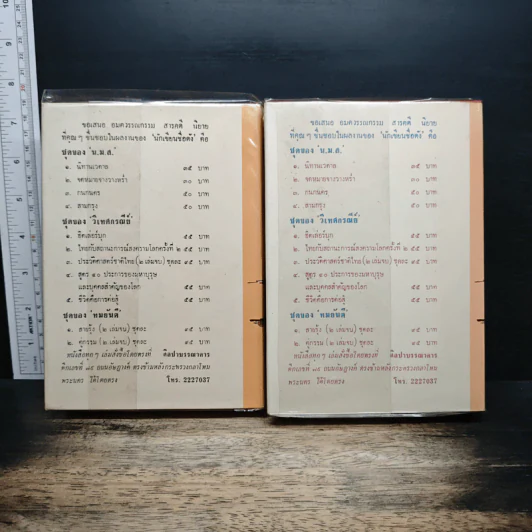 ขอเสนอ อมตวรรณกรรม สารคดี นิยาย
ที่คุณ ๆ ชื่นชอบในผลงานของ 'นักเขียนชื่อดัง' คือ
ชุดของ 'น.ม.ส.'
๑. นิทานเวตาล ๓๕ บาท
๒. จดหมายจางวางหร่ำ ๓๐ บาท
๓. กนกนคร ๕๐ บาท
๔. สามกรุง ๕๐ บาท
ชุดของ 'วิเทศกรณีย์'
๑. ฮิตเล่อร์บุก ๕๕ บาท
๒. ไทยกับสถานะการณ์สงครามโลกครั้งที่ ๒ ๕๕ บาท
๓. ประวัติศาสตร์ชาติไทย (๒ เล่มจบ) ชุดละ ๑๕ บาท
๔. สูตร ๑๐ ประการของมหาบุรุษ
และบุคคลสำคัญของโลก ๕๕ บาท
๕. ชีวิตคือการต่อสู้ ๕๕ บาท
ชุดของ 'ทมยันตี'
๑. สายรุ้ง (๒ เล่มจบ) ชุดละ ๑๕ บาท
๒. คู่กรรม (๒ เล่มจบ) ชุดละ ๑๕ บาท
หนังสือทุก ๆ เล่มสั่งซื้อโดยตรงที่ ศิลปาบรรณาคาร
ตึกเลขที่ ๗๕ ถนนอัษฎางค์ ตรงข้ามหลังกระทรวงกลาโหม
พระนคร ได้โดยตรง โทร. 2227037
ขอเสนอ อมตวรรณกรรม สารคดี นิยาย
ที่คุณ ๆ ชื่นชอบในผลงานของ 'นักเขียนชื่อดัง' คือ
ชุดของ 'น.ม.ส.'
๑. นิทานเวตาล ๓๕ บาท
๒. จดหมายจางวางหร่ำ ๓๐ บาท
๓. กนกนคร ๕๐ บาท
๔. สามกรุง ๕๐ บาท
ชุดของ 'วิเทศกรณีย์'
๑. ฮิตเล่อร์บุก ๕๕ บาท
๒. ไทยกับสถานะการณ์สงครามโลกครั้งที่ ๒ ๕๕ บาท
๓. ประวัติศาสตร์ชาติไทย (๒ เล่มจบ) ชุดละ ๑๕ บาท
๔. สูตร ๑๐ ประการของมหาบุรุษ
และบุคคลสำคัญของโลก ๕๕ บาท
๕. ชีวิตคือการต่อสู้ ๕๕ บาท
ชุดของ 'ทมยันตี'
๑. สายรุ้ง (๒ เล่มจบ) ชุดละ ๑๕ บาท
๒. คู่กรรม (๒ เล่มจบ) ชุดละ ๑๕ บาท
หนังสือทุก ๆ เล่มสั่งซื้อโดยตรงที่ ศิลปาบรรณาคาร
ตึกเลขที่ ๗๕ ถนนอัษฎางค์ ตรงข้ามหลังกระทรวงกลาโหม
พระนคร ได้โดยตรง โทร. 2227037